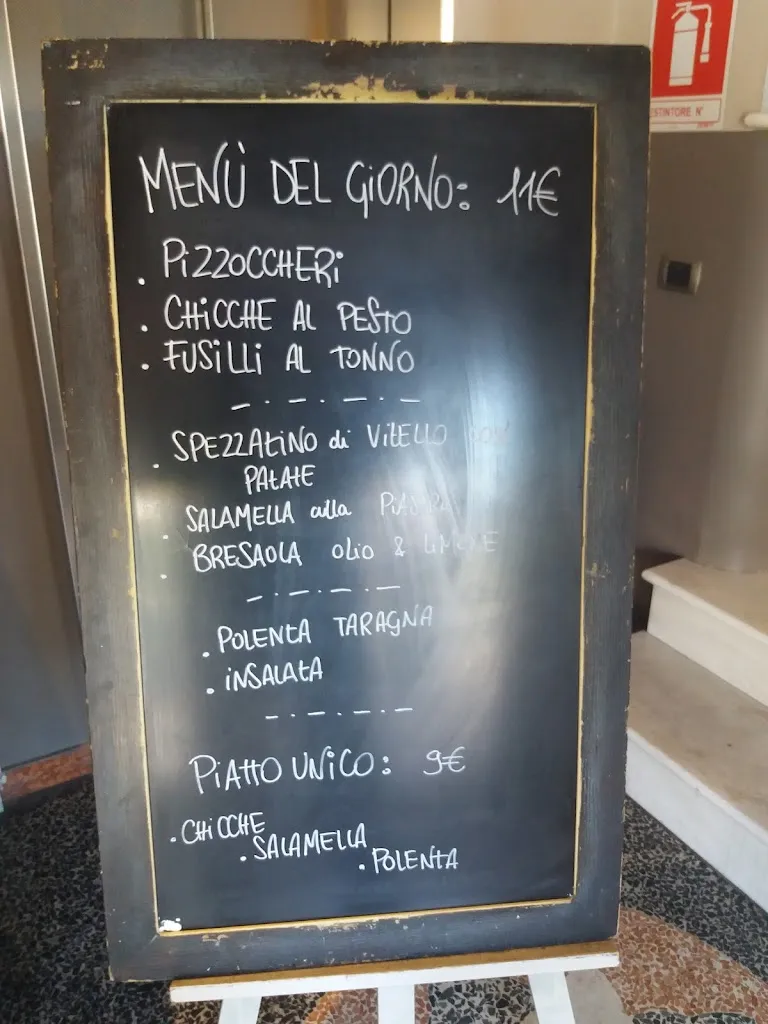 ESTINTORE N°
MENÙ DEL GIORNO: 11€
. PIZZOCCHERI
. CHICCHE AL PESTO
. FUSILLI AL TONNO
_ . _ . _ . _
. SPEZZATINO di VITELLO CON
PATATE
. SALAMELLA alla PIASTRA
. BRESAOLA OLIO & LIMONE
_ . _ . _ . _
. POLENTA TARAGNA
. INSALATA
_ . _ . _ . _
PIATTO UNICO: 9€
. CHICCHE
. SALAMELLA
. POLENTA